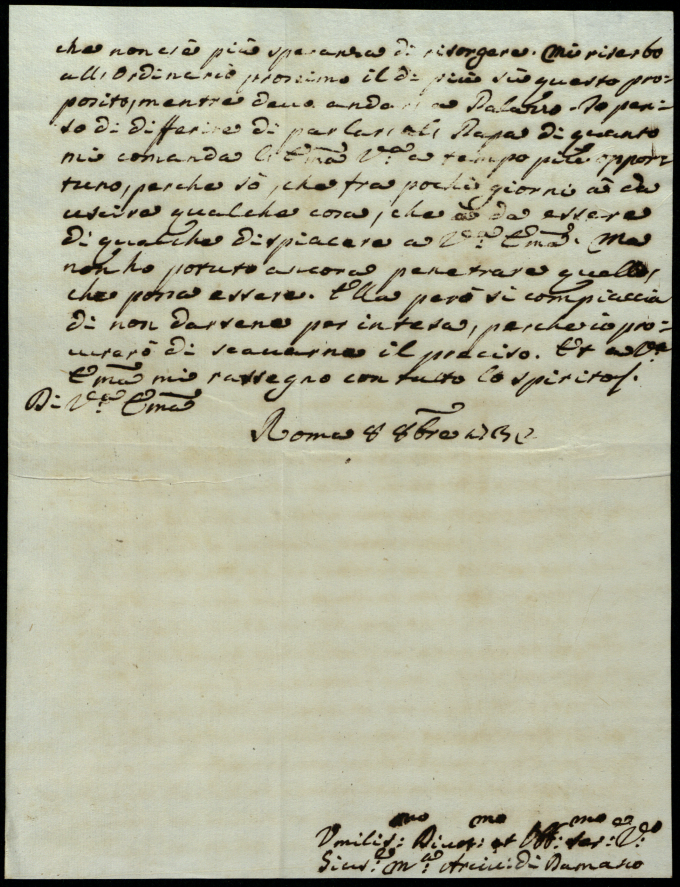 che non cè più speranza di risorgere. Mi riserbo
all'Ordinario prossimo il di più sù questo pro-
posito, mentre devo andare a Palazzo. Io pen-
so di differire di parlar al Papa di quanto
mi comanda l'Em̃a V.ra a tempo più oppor-
tuno, perche sò, che tra pochi giorni à da
uscire qualche cosa, che à da essere
di qualche dispiacere a V.ra Em̃a. Ma
non ho potuto ancora penetrare quello,
che possa essere. Ella però si compiaccia
di non darsene per intesa, perche io pro-
curerò di scavarne il preciso. Et a V.ra
Em̃a mi rassegno con tutto lo spirito.
Di V.ra Em̃a
Roma 8 8bre
Umilis:mo Divot:mo et Obb:mo Ser:e V:o
Gius:e M:a Arciv: di Damasco